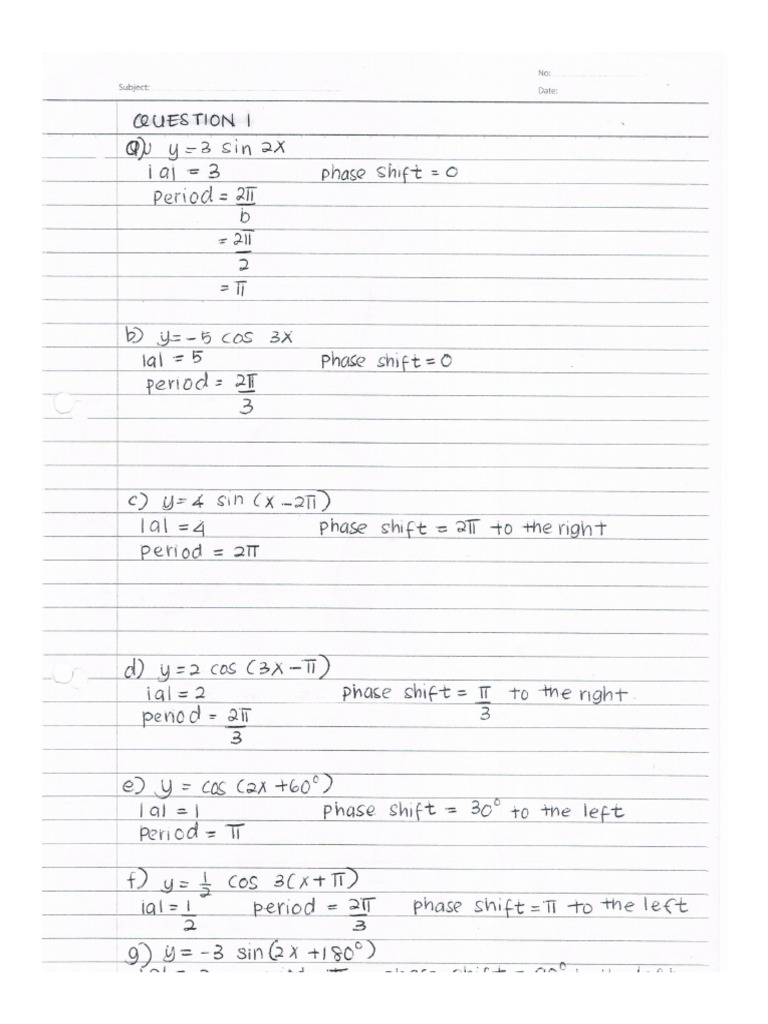 No:
Subject:
Date:
QUESTION 1
a) y = 3 sin 2x
|a| = 3 phase shift = 0
period = 2π
b
= 2π
2
= π
b) y = -5 cos 3x
|a| = 5 phase shift = 0
period = 2π
3
c) y = 4 sin (x - 2π)
|a| = 4 phase shift = 2π to the right
period = 2π
d) y = 2 cos (3x - π)
|a| = 2 phase shift = π to the right.
3
period = 2π
3
e) y = cos (2x + 60°)
|a| = 1 phase shift = 30° to the left
period = π
f) y = 1/2 cos 3(x + π)
|a| = 1 period = 2π phase shift = π to the left
2 3
g) y = -3 sin (2x + 180°)